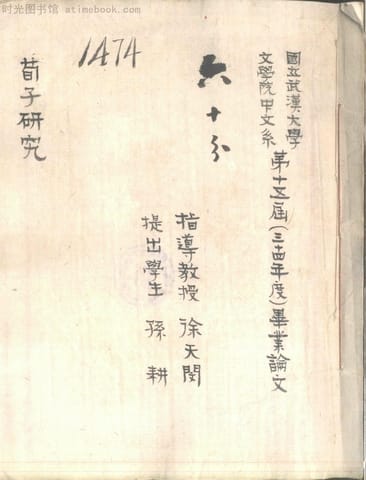 时光图书馆 - atimebook.com
國立武漢大學
文學院中文系
第十五屆(三四年度)畢業論文
六十分
指導教授 徐天閔
提出學生 孫耕
1474
荀子研究